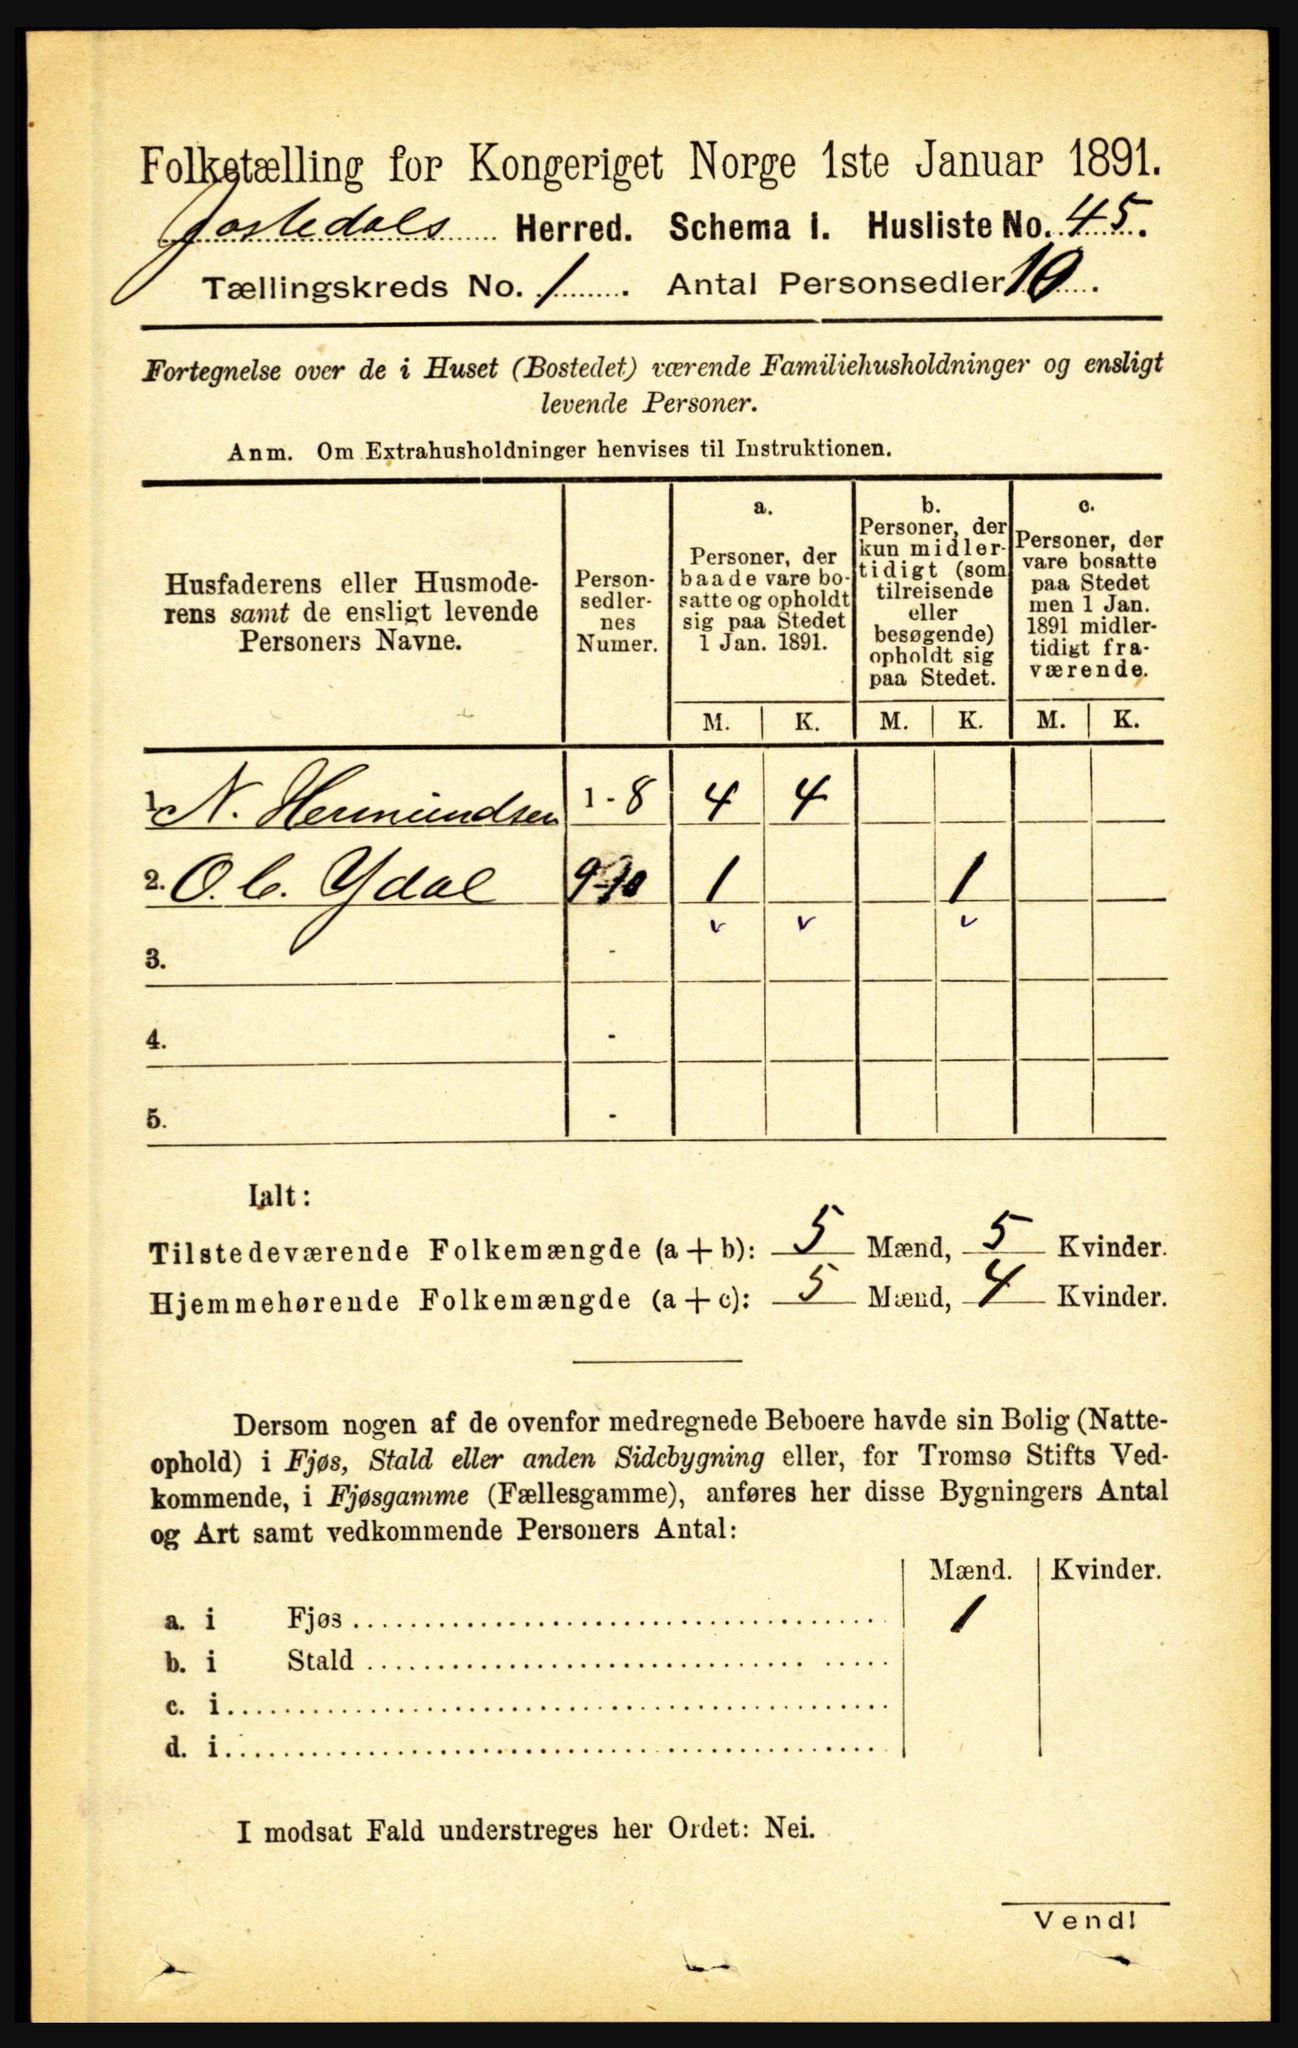 Folketælling for Kongeriget Norge 1ste Januar 1891.
Jostedals Herred. Schema I. Husliste No. 45.
Tællingskreds No. 1. Antal Personsedler 10.
Fortegnelse over de i Huset (Bostedet) værende Familiehusholdninger og ensligt
levende Personer.
Anm. Om Extrahusholdninger henvises til Instruktionen.
Husfaderens eller Husmode-
rens samt de ensligt levende
Personers Navne.
Person-
sedler-
nes
Numer.
a.
Personer, der
baade vare bo-
satte og opholdt
sig paa Stedet
1 Jan. 1891.
b.
Personer, der
kun midler-
tidigt (som
tilreisende
eller
besøgende)
opholdt sig
paa Stedet.
c.
Personer, der
vare bosatte
paa Stedet
men 1 Jan.
1891 midler-
tidigt fra-
værende.
M. K. M. K. M. K.
1. N. Hermundsen 1 - 8 4 4
2. O. C. Ydal 9-10 1 1
3. -
4. -
5. -
Ialt:
Tilstedeværende Folkemængde (a + b): 5 Mænd, 5 Kvinder.
Hjemmehørende Folkemængde (a + c): 5 Mænd, 4 Kvinder.
Dersom nogen af de ovenfor medregnede Beboere havde sin Bolig (Natte-
ophold) i Fjøs, Stald eller anden Sidebygning eller, for Tromsø Stifts Ved-
kommende, i Fjøsgamme (Fællesgamme), anføres her disse Bygningers Antal
og Art samt vedkommende Personers Antal:
Mænd. Kvinder.
a. i Fjøs 1
b. i Stald
c. i
d. i
I modsat Fald understreges her Ordet: Nei.
Vend!